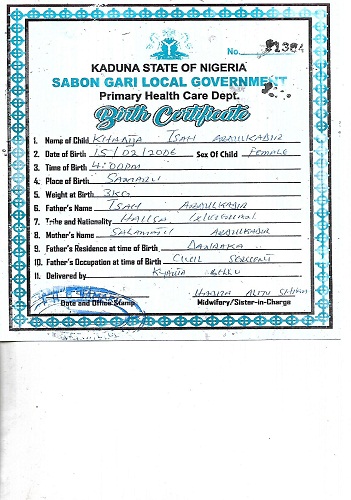 No. 21384
KADUNA STATE OF NIGERIA
SABON GARI LOCAL GOVERNMENT
Primary Health Care Dept.
Birth Certificate
1. Name of Child KHADIJA ISAH ABDULKADIR
2. Date of Birth 15/02/2006 Sex Of Child FEMALE
3. Time of Birth 4:00PM
4. Place of Birth SAMARU
5. Weight at Birth 3KG
6. Father's Name ISAH ABDULKADIR
7. Tribe and Nationality HAUSA
8. Mother's Name ABDULKADIR
9. Father's Residence at time of Birth DANRAKA
10. Father's Occupation at time of Birth CIVIL SERVENT
11. Delivered by
Date and Office Stamp Midwifery/Sister-in-Charge